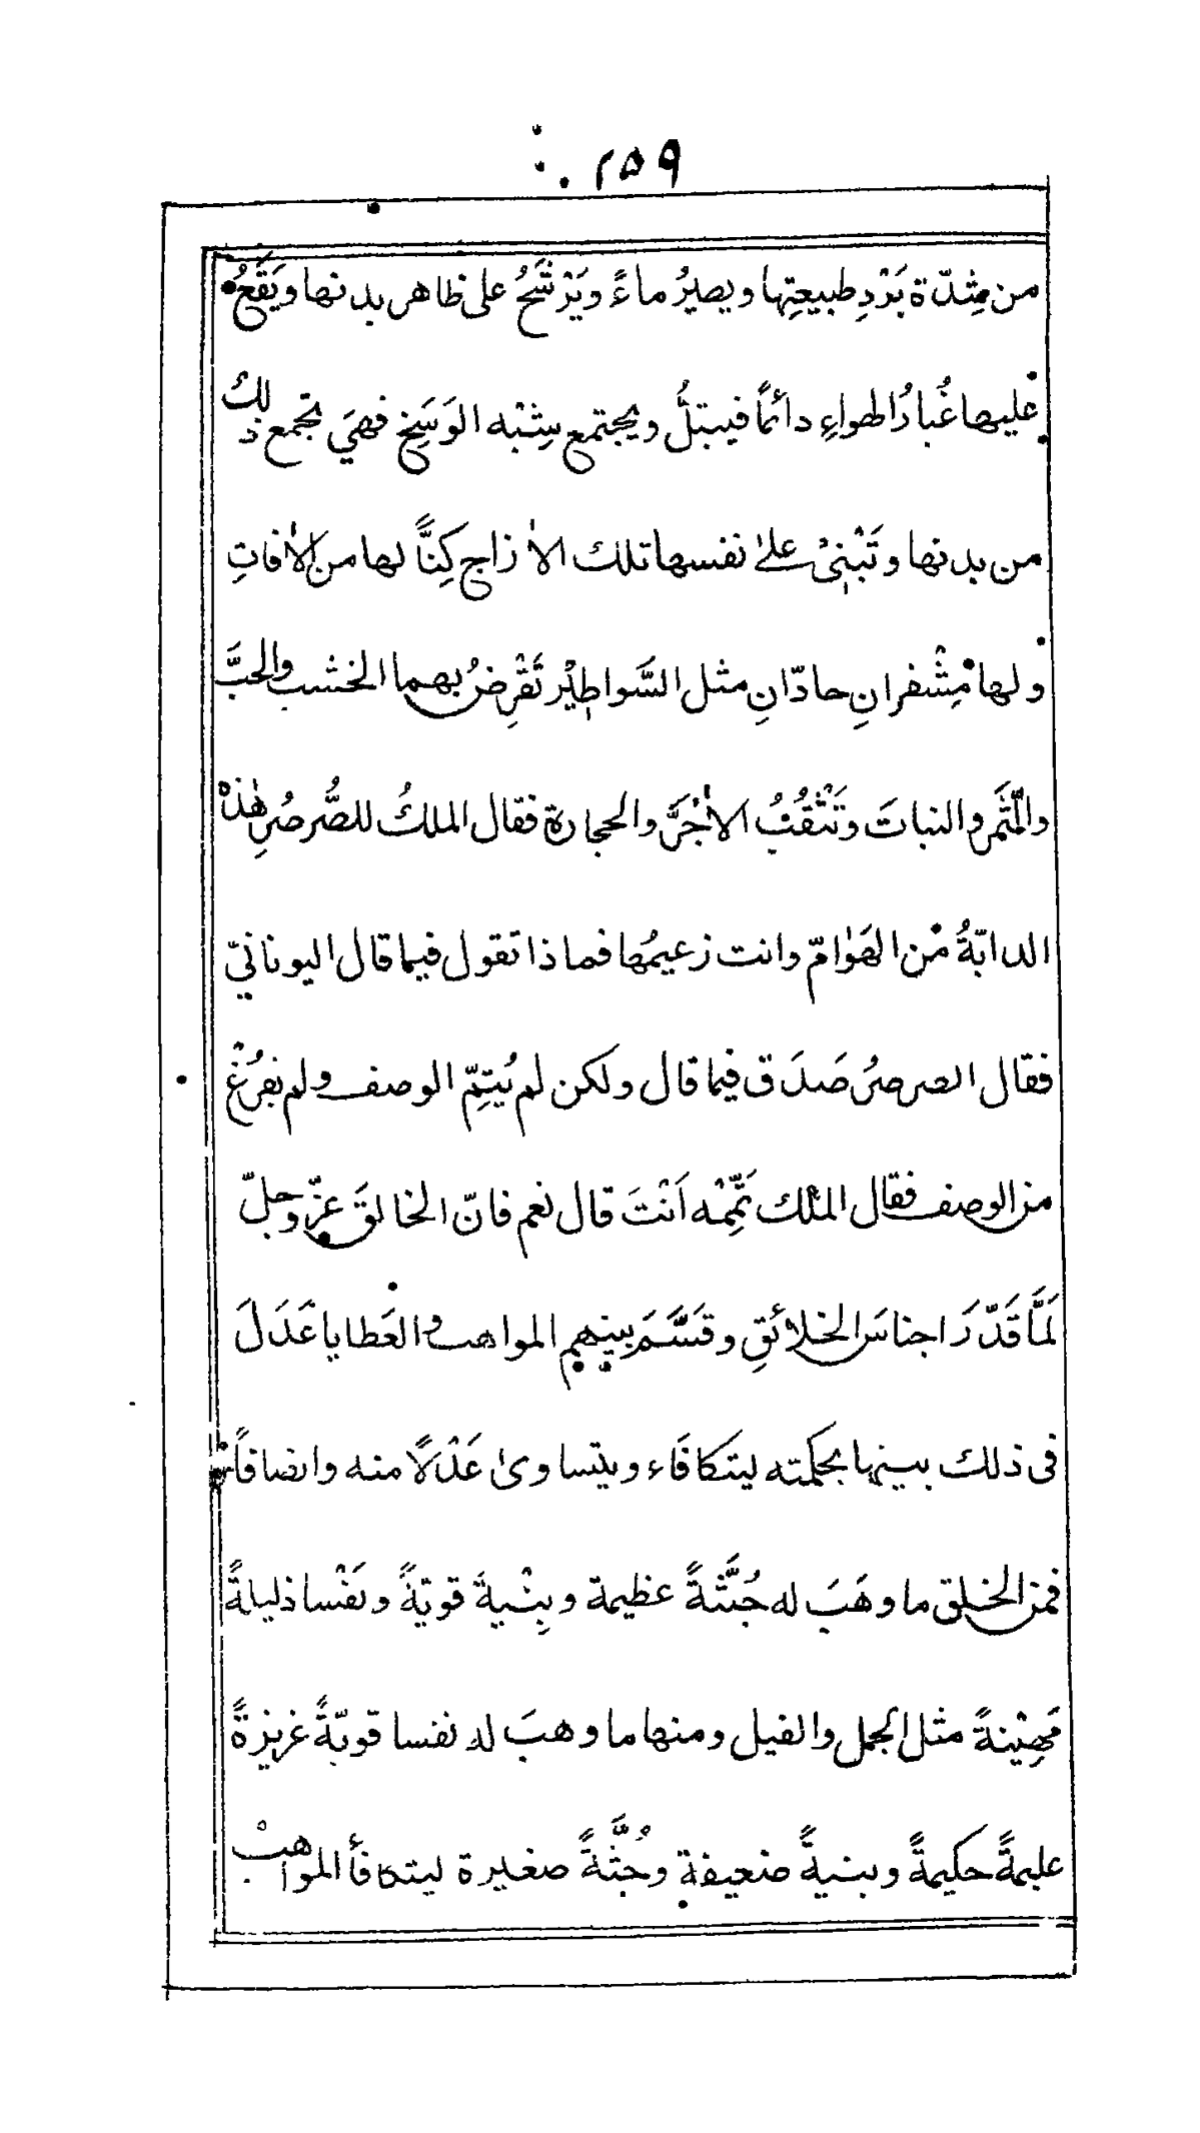 ٢٥٩
من شِدّة بَرْدِ طبيعتِها ويصيرُ ماءً ويَرْشَحُ على ظاهر بدنها ويَقَعُ
عليها غُبارُ الهواءِ دائمًا فيبتلُّ ويجتمع شِبْه الوَسَخِ فهيَ تجمع ذلك
من بدنها وتَبْنِىْ علىٰ نفسها تلك الازاج كِنًّا لها من الأفاتِ
ولها مِشْفرانِ حادّانِ مثل السَّواطِيْر تَقْرِضُ بهما الخشب والحَبَّ
والثَّمَر والنباتَ وتَثْقُبُ الاٰجُرَّ والحجارة فقال الملكُ للصُّرصُرِ هٰذه
الدابّةُ من الهَوٰامّ وانت زعيمُها فماذا تقول فيما قال اليونانيّ
فقال الصرصرُ صَدَق فيما قال ولكن لم يُتِمّ الوصف ولم يفرُغْ
من الوصف فقال الملك تَمِّمْه اَنْتَ قال نعم فانّ الخالقَ عزّ وجلّ
لَمَّا قَدّرَ اجناسَ الخلائقِ وقَسَّمَ بينهم المواهب والعَطايا عَدَلَ
فى ذلك بينها بحكمته ليتكافَاء ويتساوىٰ عَدْلًا منه وانصافاً
فمن الخلق ما وهَبَ له جُثَّةً عظيمة وبِنْيةً قويّةً ونَفْسا ذليلةً
مَهِيْنةً مثل الجمل والفيل ومنها ما وهبَ له نفسا قويّةً غريزةً
عليمةً حكيمةً وبنيةً ضعيفة وجُثَّةً صغيرة ليتكافأ المواهبْ